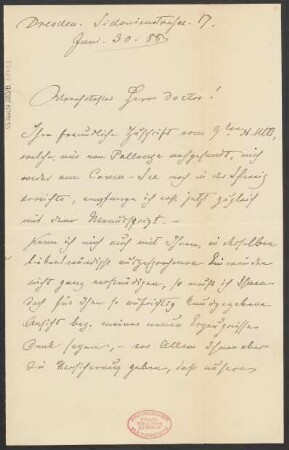 Dresden. Sidonienstrasse. 17.
Juni. 30. 88
Herr Doctor!
Ihre freundliche Zuschrift vom 9
welche mir von Pallanza nachgesandt, mich
weder am Comer-See noch in der Schweiz
erreichte, empfange ich erst jetzt zugleich
mit dem Manuscript. —
Kann ich mich auch mit Ihren, in derselben
ausgesprochenen
nicht ganz so muß ich Ihnen
doch für Ihre so aufrichtig kundgegebene
Ansicht bez. meiner neuen Erzeugnisse
Dank sagen, – vor Allem Ihnen aber
die Versicherung geben, daß unsere